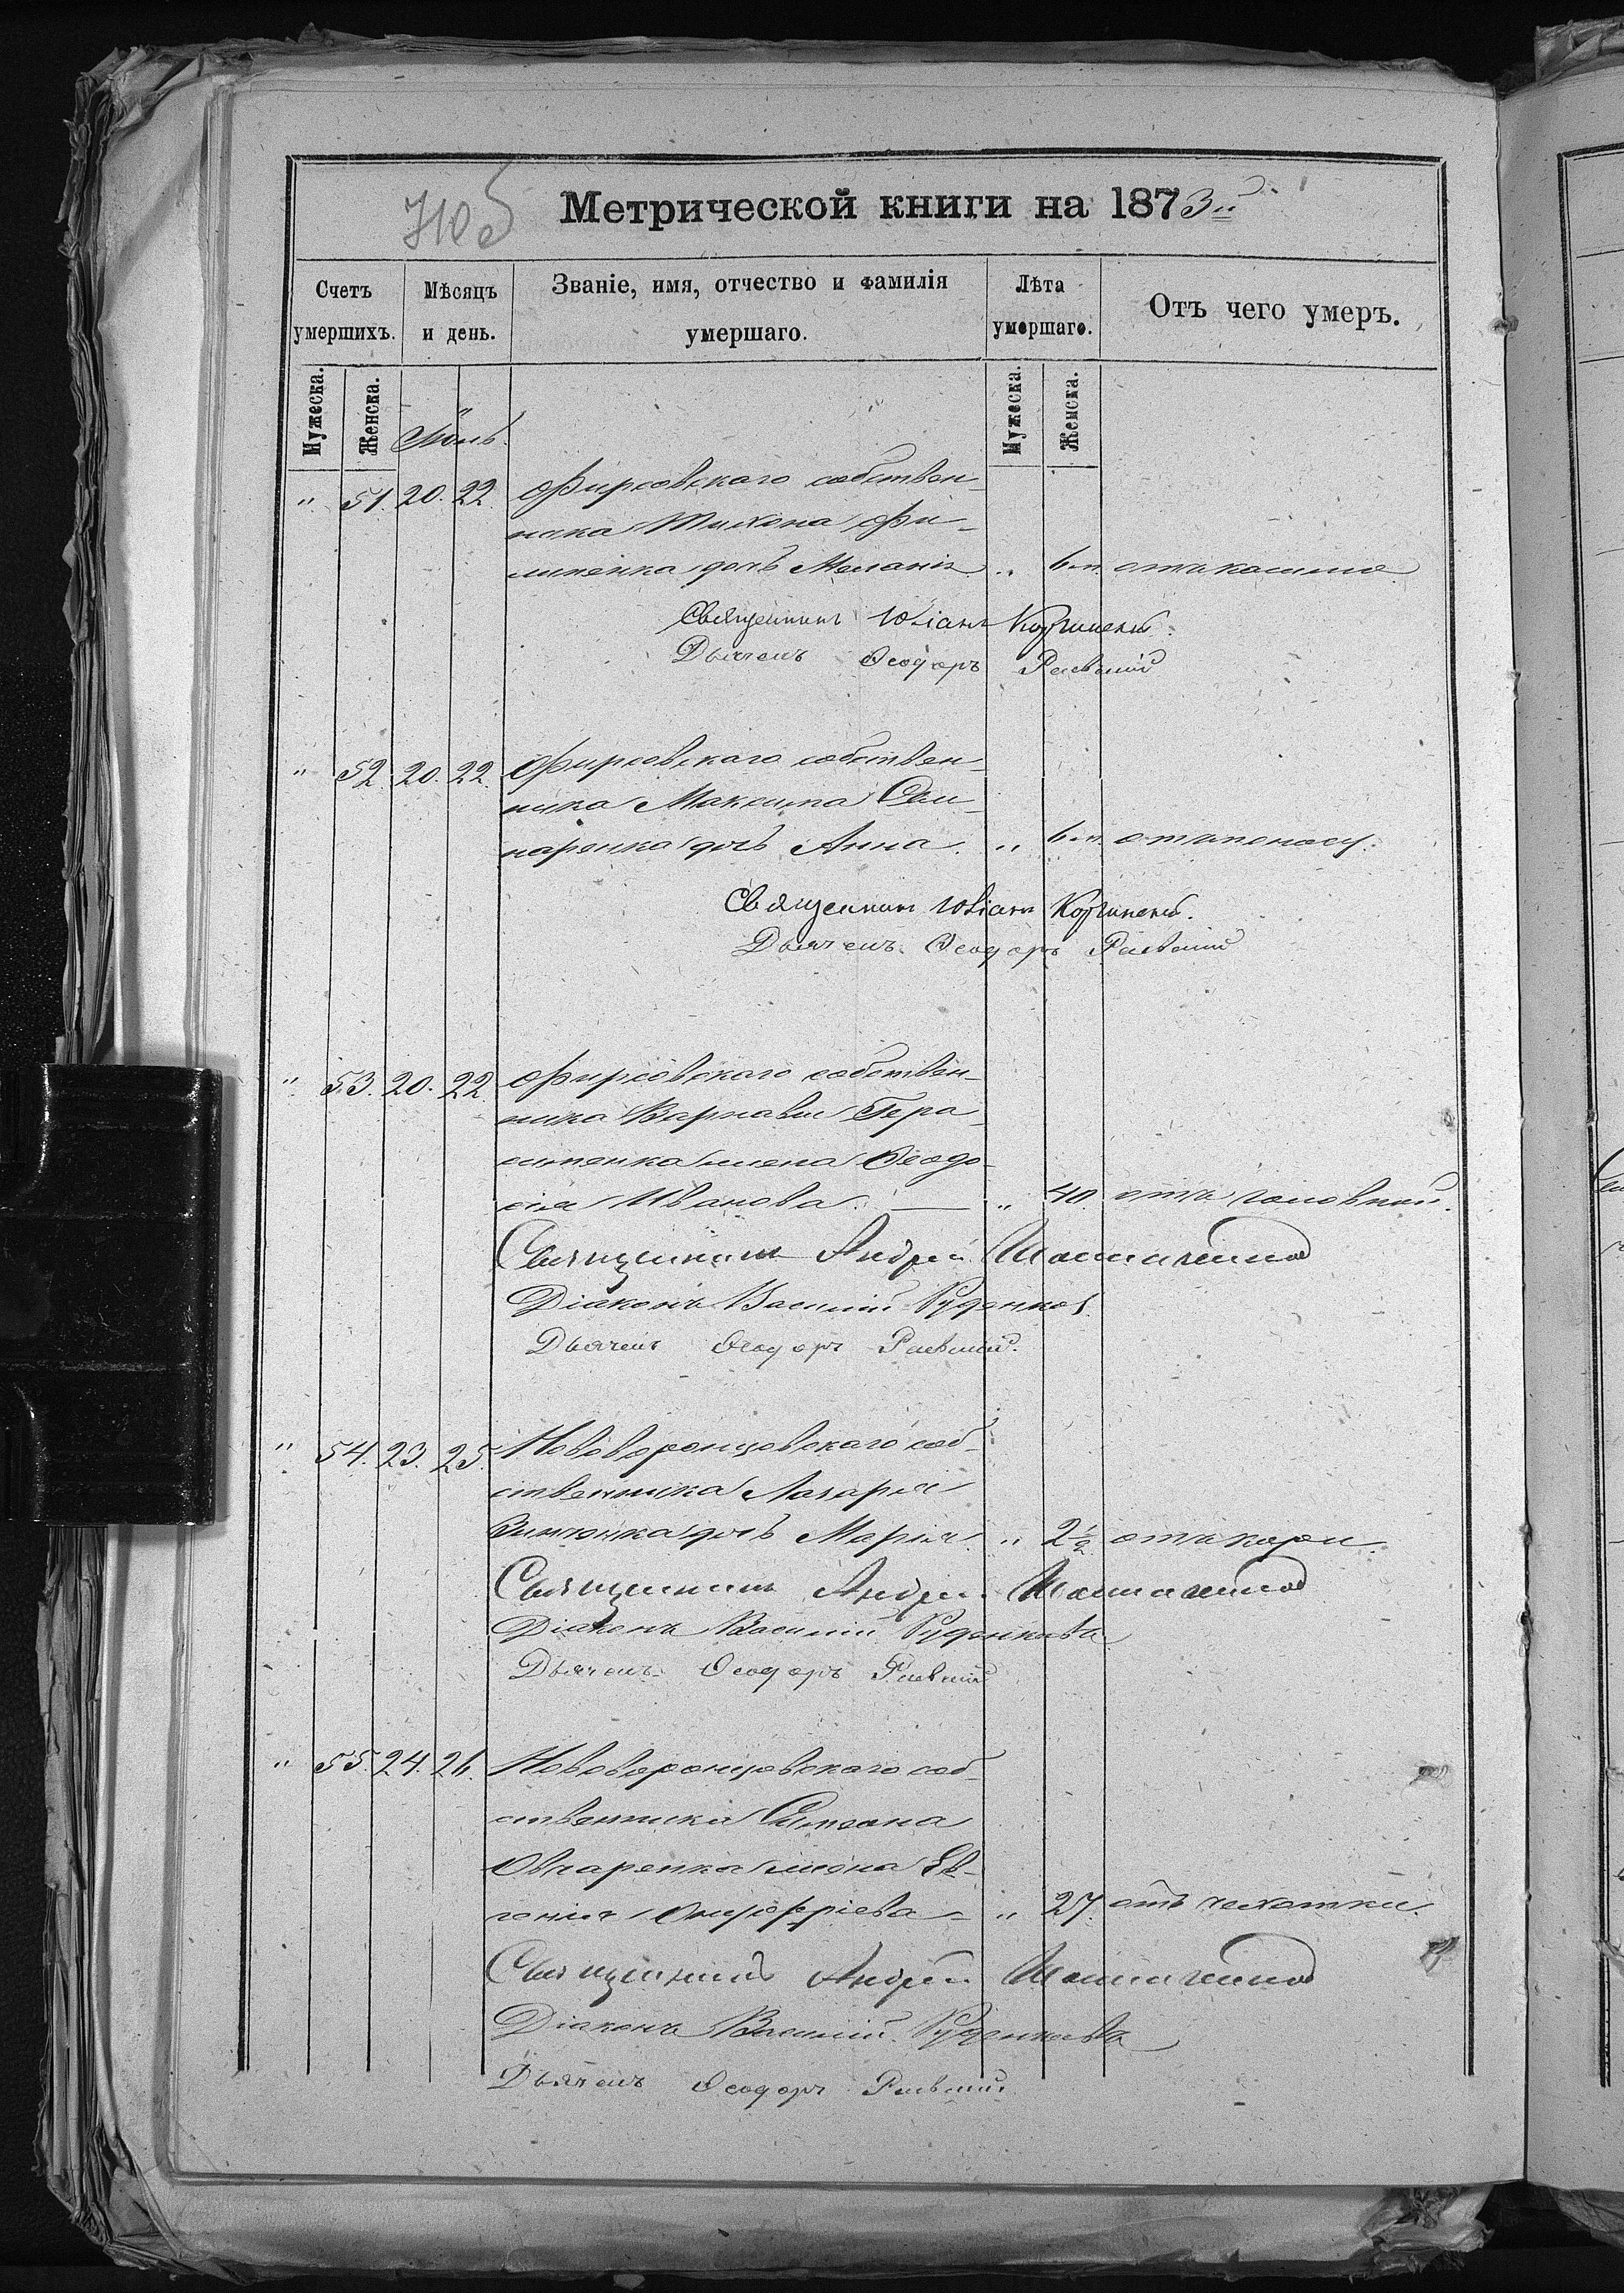 Метрической книги на 1873й
Счетъ умершихъ.
Мѣсяцъ и день.
Званіе, имя, отчество и фамилія умершаго.
Лѣта умершаго.
Отъ чего умеръ.
Мужеска.
Женска.
Мужеска.
Женска.
" 51. 20. 22. Фирсовскаго собствен-
ника Тихона Фи-
липенка дочь Меланія " 6 м. отъ кашля
Священникъ Юліанъ
Дьячекъ Ѳеодоръ Раевскій
" 52. 20. 22. Фирсовскаго собствен-
ника Максима
дочь Анна. " 6 м. отъ поносу.
Священникъ Юліанъ
Дьячекъ Ѳеодоръ Раевскій
" 53. 20. 22. Фирсовскаго собствен-
ника Варнавы Гера-
сименка жена Ѳеодо-
сія Иванова. — " 40. отъ головной.
Священникъ Андрей
Діаконъ Василій Руденковъ
Дьячекъ Ѳеодоръ Раевскій.
" 54. 23. 25. Нововоронцовскаго соб-
ственника Лазаря
Зинченка дочь Марія. " 2½ отъ кори.
Священникъ Андрей
Діаконъ Василій Руденковъ
Дьячекъ Ѳеодоръ Раевскій
" 55. 24. 26. Нововоронцовскаго соб-
ственника Симеона
Овчаренка жена Ев-
генія Онуфріева — " 27. отъ чахотки.
Священникъ Андрей
Діаконъ Василій Руденковъ
Дьячекъ Ѳеодоръ Раевскій